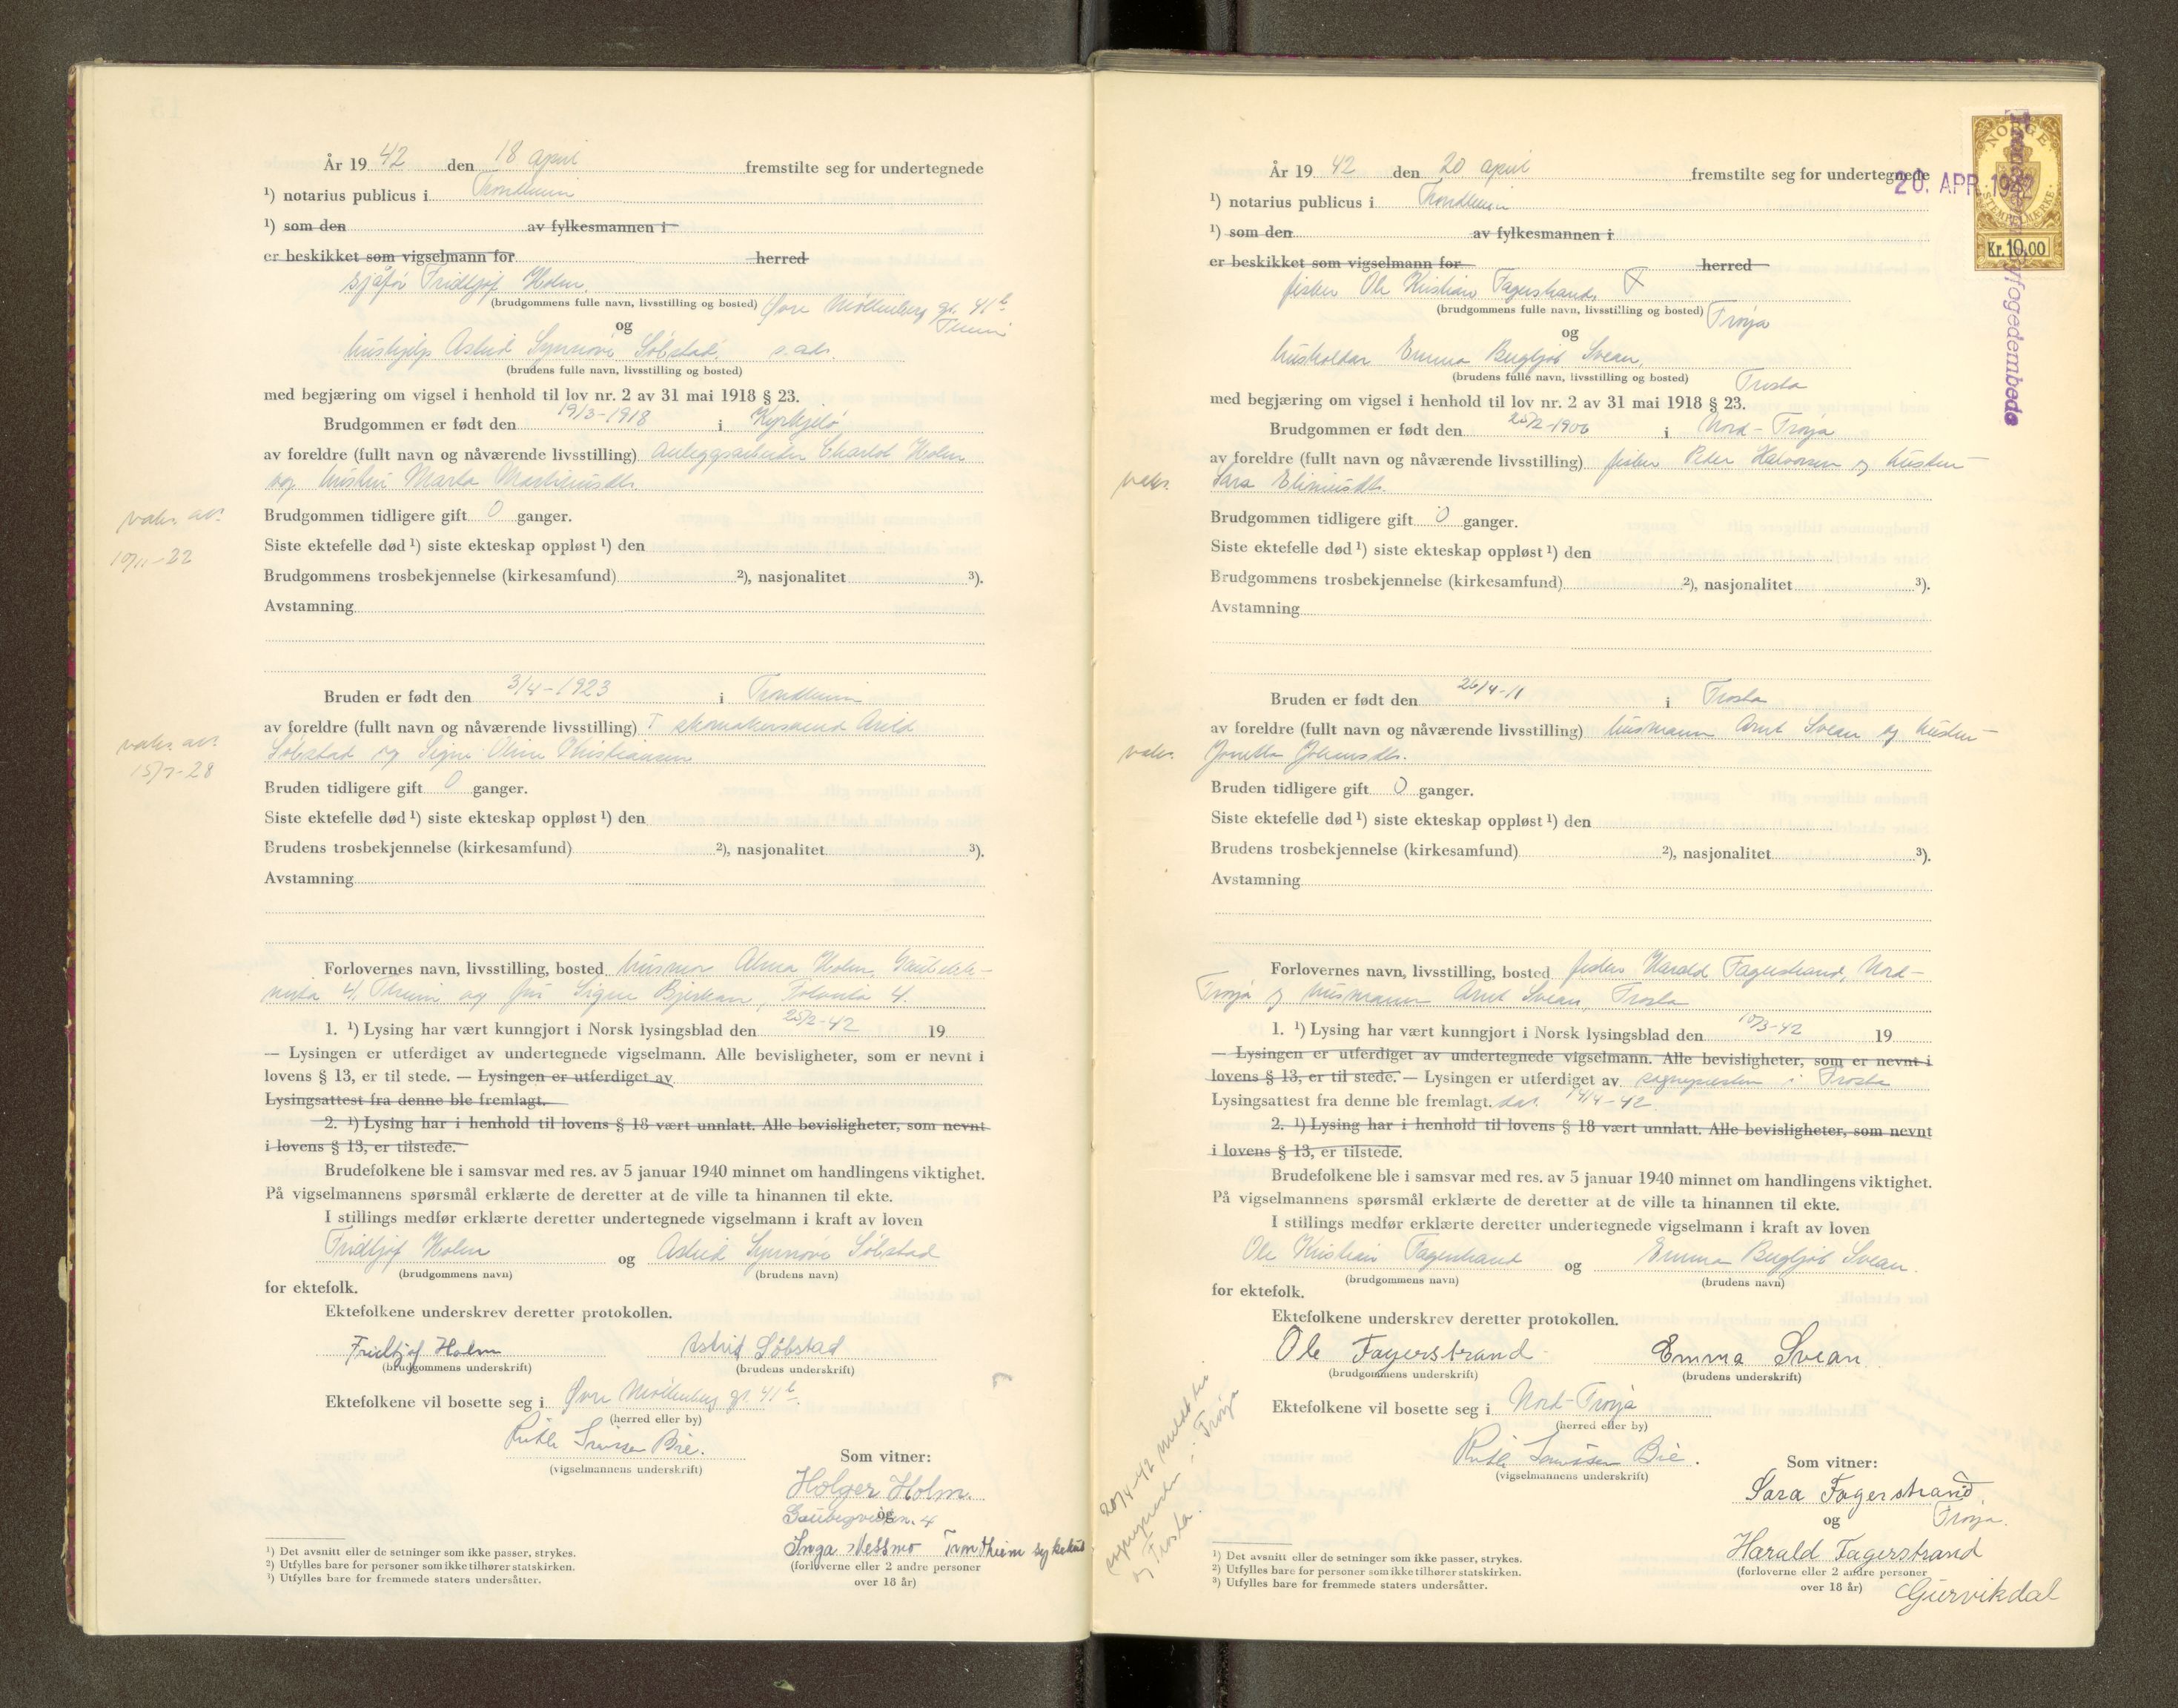 År 19 42 den 18 april fremstilte seg for undertegnede
¹) notarius publicus i Trondheim
¹) som den av fylkesmannen i
er beskikket som vigselmann for herred
sjåfør Fridtjof Holm,
(brudgommens fulle navn, livsstilling og bosted) Øvre Møllenberg gt. 41 b
og
hushjelp Astrid Synnøve Söbstad, s. adr.
(brudens fulle navn, livsstilling og bosted)
med begjæring om vigsel i henhold til lov nr. 2 av 31 mai 1918 § 23.
Brudgommen er født den 19/3-1918 i
av foreldre (fullt navn og nåværende livsstilling) anleggsarbeider Charlot Holm
og hustru Marta
vaks. att.
Brudgommen tidligere gift 0 ganger.
10/11-22
Siste ektefelle død ¹) siste ekteskap oppløst ¹) den
Brudgommens trosbekjennelse (kirkesamfund) ²), nasjonalitet ³).
Avstamning
Bruden er født den 3/4-1923 i Trondheim
av foreldre (fullt navn og nåværende livsstilling) skomakersvend Arild
vaks. att.
Söbstad og Signe Kristiansen
15/7-28
Bruden tidligere gift 0 ganger.
Siste ektefelle død ¹) siste ekteskap oppløst ¹) den
Brudens trosbekjennelse (kirkesamfund) ²), nasjonalitet ³).
Avstamning
Forlovernes navn, livsstilling, bosted husmor Alma Holm,
4, Theim og fru Signe Bjerkan, 4.
1. ¹) Lysing har vært kunngjort i Norsk lysingsblad den 25/2-42 19
— Lysingen er utferdiget av undertegnede vigselmann. Alle bevisligheter, som er nevnt i
lovens § 13, er til stede. — Lysingen er utferdiget av
Lysingsattest fra denne ble fremlagt.
2. ¹) Lysing har i henhold til lovens § 18 vært unnlatt. Alle bevisligheter, som nevnt
i lovens § 13, er tilstede.
Brudefolkene ble i samsvar med res. av 5 januar 1940 minnet om handlingens viktighet.
På vigselmannens spørsmål erklærte de deretter at de ville ta hinannen til ekte.
I stillings medfør erklærte deretter undertegnede vigselmann i kraft av loven
Fridtjof Holm og Astrid Synnøve Söbstad
(brudgommens navn) (brudens navn)
for ektefolk.
Ektefolkene underskrev deretter protokollen.
Fridtjof Holm Astrid Söbstad
(brudgommens underskrift) (brudens underskrift)
Ektefolkene vil bosette seg i Øvre Møllenberg gt. 41 b
(herred eller by)
Bie.
(vigselmannens underskrift)
Som vitner:
Holger Holm.
og
Inga Messmo Trondheim
(forloverne eller 2 andre personer
over 18 år)
¹) Det avsnitt eller de setninger som ikke passer, strykes.
²) Utfylles bare for personer som ikke tilhører statskirken.
³) Utfylles bare for fremmede staters undersåtter.
År 19 42 den 20 april fremstilte seg for undertegnede
20. APR. 1942
NORGE
STEMPELMÆRKE
Kr. 10,00
¹) notarius publicus i Trondheim
¹) som den av fylkesmannen i
er beskikket som vigselmann for herred
fisker Ole Kristian Fagerstrand,
(brudgommens fulle navn, livsstilling og bosted) Frøya
og
husholder Emma Bergljot Svean,
(brudens fulle navn, livsstilling og bosted)
Frosta
med begjæring om vigsel i henhold til lov nr. 2 av 31 mai 1918 § 23.
Brudgommen er født den 25/2-1906 i Nord-Frøya
av foreldre (fullt navn og nåværende livsstilling) fisker Peder Halvorsen og hustru
vaks.
Sara
Brudgommen tidligere gift 0 ganger.
Siste ektefelle død ¹) siste ekteskap oppløst ¹) den
Brudgommens trosbekjennelse (kirkesamfund) ²), nasjonalitet ³).
Avstamning
Bruden er født den 26/4-11 i Frosta
av foreldre (fullt navn og nåværende livsstilling) husmann Arnt Svean og hustru
vaks.
Jonetta
Bruden tidligere gift 0 ganger.
Siste ektefelle død ¹) siste ekteskap oppløst ¹) den
Brudens trosbekjennelse (kirkesamfund) ²), nasjonalitet ³).
Avstamning
Forlovernes navn, livsstilling, bosted fisker Harald Fagerstrand, Nord-
Frøya og husmann Arnt Svean, Frosta
1. ¹) Lysing har vært kunngjort i Norsk lysingsblad den 10/3-42 19
— Lysingen er utferdiget av undertegnede vigselmann. Alle bevisligheter, som er nevnt i
lovens § 13, er til stede. — Lysingen er utferdiget av sognepresten i Frosta
Lysingsattest fra denne ble fremlagt. dat. 14/4-42
2. ¹) Lysing har i henhold til lovens § 18 vært unnlatt. Alle bevisligheter, som nevnt
i lovens § 13, er tilstede.
Brudefolkene ble i samsvar med res. av 5 januar 1940 minnet om handlingens viktighet.
På vigselmannens spørsmål erklærte de deretter at de ville ta hinannen til ekte.
I stillings medfør erklærte deretter undertegnede vigselmann i kraft av loven
Ole Kristian Fagerstrand og Emma Bergljot Svean.
(brudgommens navn) (brudens navn)
for ektefolk.
Ektefolkene underskrev deretter protokollen.
Ole Fagerstrand Emma Svean
(brudgommens underskrift) (brudens underskrift)
Ektefolkene vil bosette seg i Nord-Frøya
(herred eller by)
Bie.
(vigselmannens underskrift)
20/4-42 meldt til
sognepresten i Frøya
og Frosta.
Som vitner:
Sara Fagerstrand
og Frøya.
Harald Fagerstrand
(forloverne eller 2 andre personer
over 18 år) Gurvikdal
¹) Det avsnitt eller de setninger som ikke passer, strykes.
²) Utfylles bare for personer som ikke tilhører statskirken.
³) Utfylles bare for fremmede staters undersåtter.